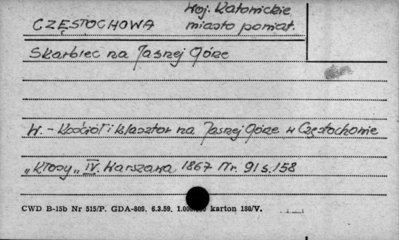 Woj. Katowickie
CZĘSTOCHOWA miasto powiat.
Skarbiec na Jasnej Górze
W. - Kościół i klasztor na Jasnej Górze w Częstochowie
„Kłosy„ IV. Warszawa 1867 Nr. 91 s. 158
CWD B-15b Nr 515/P. GDA-809. 6.3.59. karton 180/V.